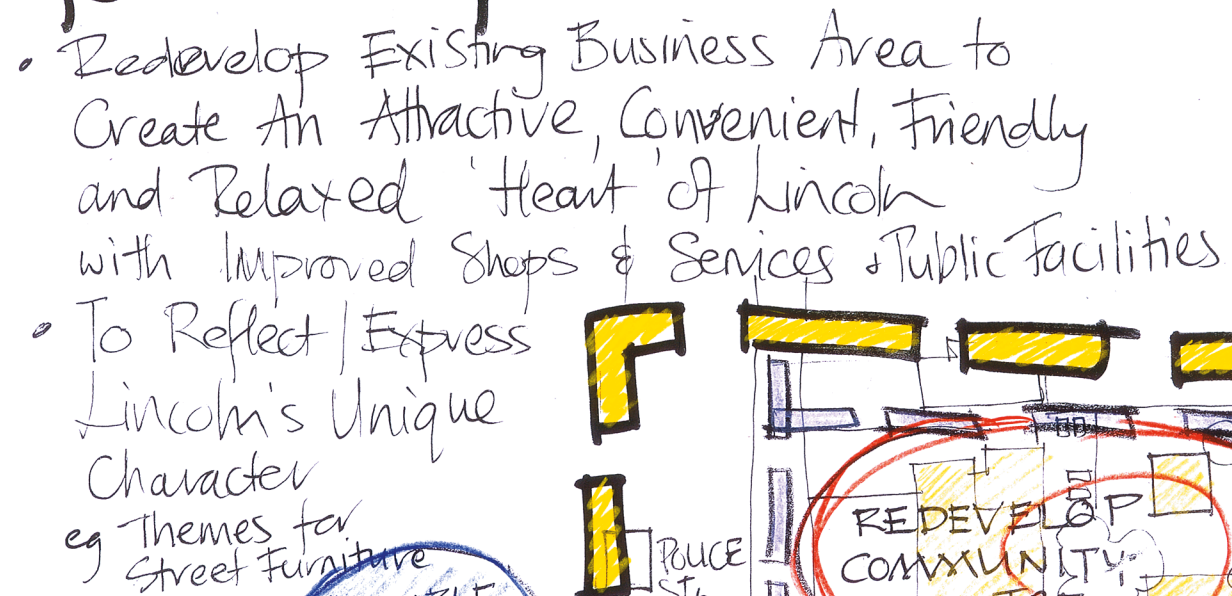 • Redevelop Existing Business Area to
Create An Attractive, Convenient, Friendly
and Relaxed 'Heart' of Lincoln
with Improved Shops & Services & Public Facilities
• To Reflect / Express
Lincoln's Unique
Character
eg Themes for
Street Furniture
POLICE
STN
REDEVELOP
COMMUNITY